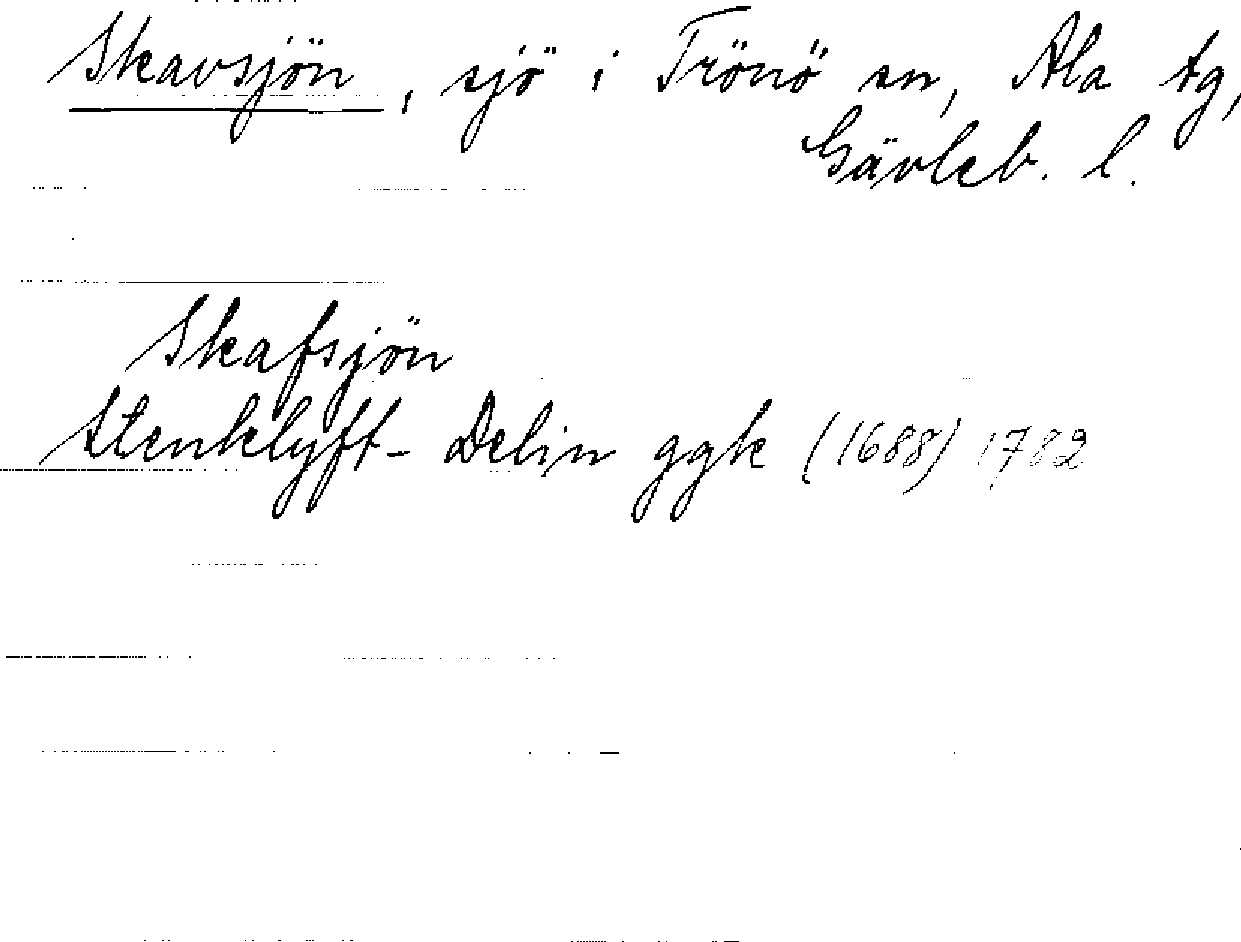 Skavsjön, sjö i Trönö sn, Ala tg,
Gävleb. l.
Skafsjön
Stenklyft- Delin ggk (1688) 1782